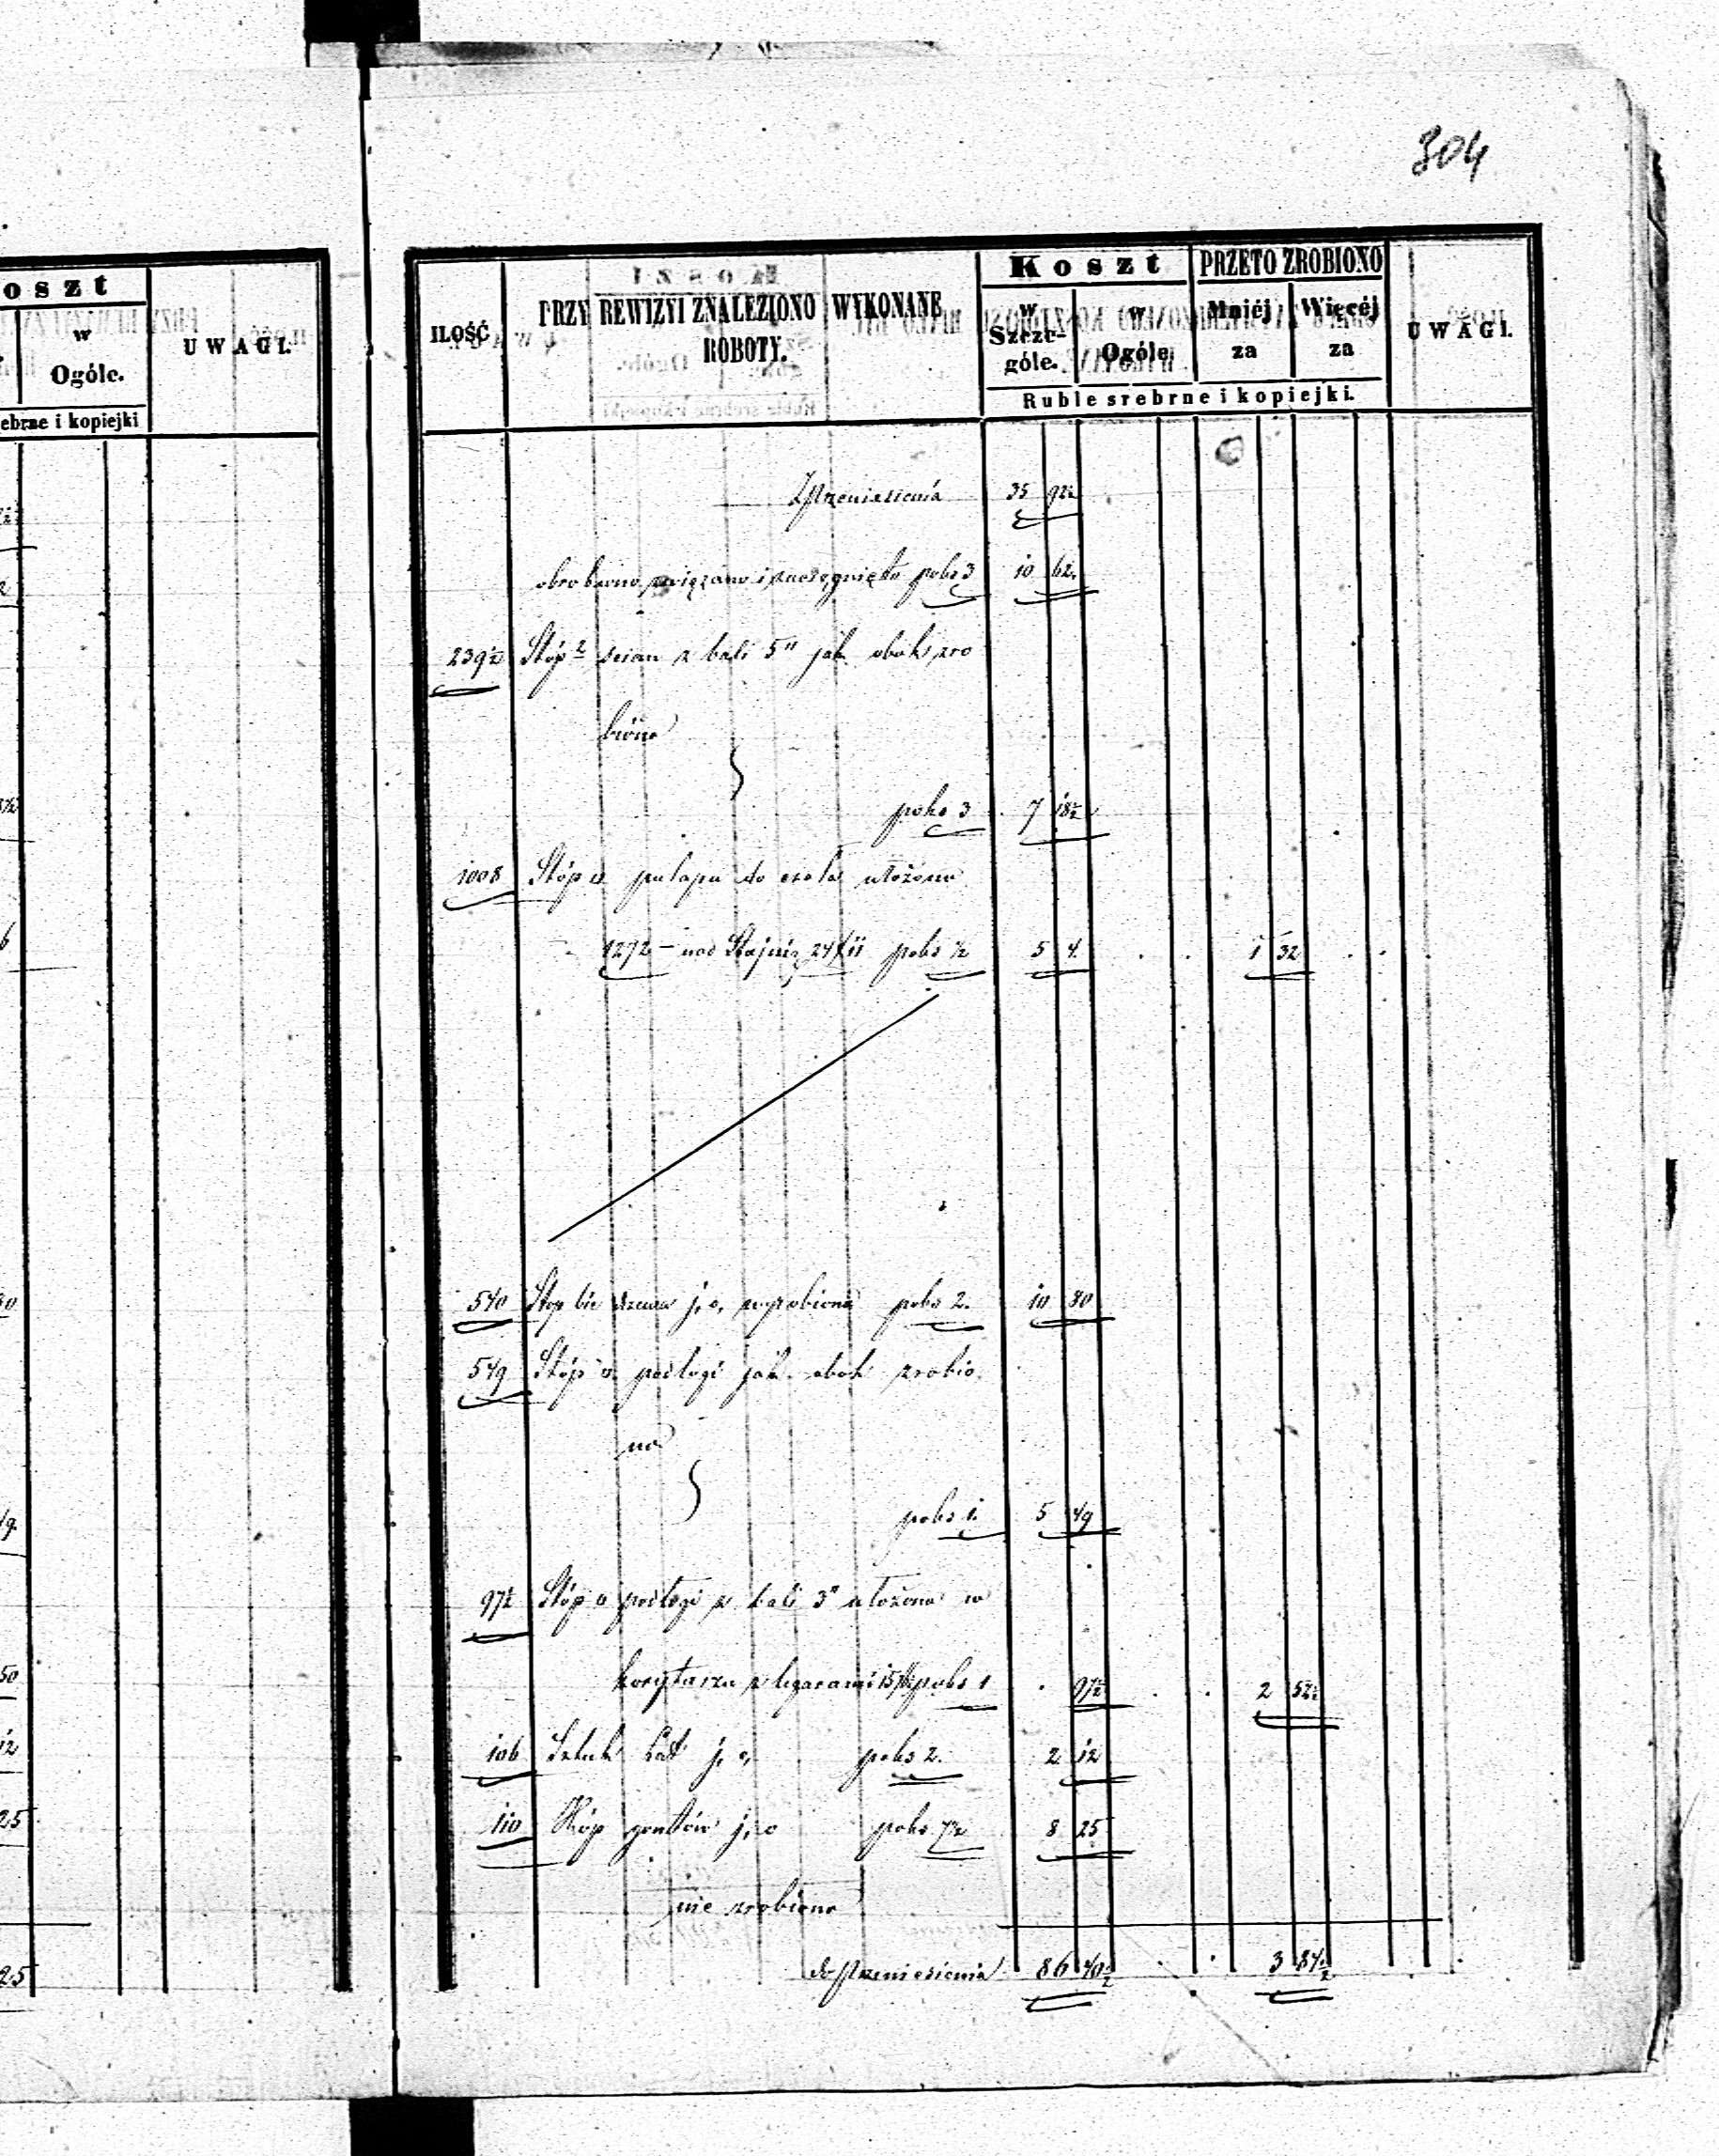 304
oszt
w
Ogóle.
ebrne i kopiejki
UWAGI.
ILOŚĆ
PRZY REWIZYI ZNALEZIONO WYKONANE
ROBOTY.
Koszt
w Szcze-
góle.
w
Ogóle
PRZETO ZROBIONO
Mniéj
za
Więcéj
za
Ruble srebrne i kopiejki.
UWAGI.
Z przeniesienia 35 92½
obrobiono, związano i zaciągnięto po ks 3 10 62
239½ Stóp 2 scian z bali 5" jak obok zro
biono
po ks 3 7 18½
1008 Stóp pułapu do czoła ułożono
1272 — nad Stajnią 24/11 po ks ½ 5 4 1 32
540 Stóp j, o, wyrobiono po ks 2. 10 80
549 Stóp podłogi jak obok zrobio
no
po ks 1. 5 49
97½ Stóp podłogi z bali 3" ułożono w
korytarzu z legarami po ks 1 97½ 2 52½
106 Sztuk Łat j, o, po ks 2. 2 12
110 Kóp gontów j, o po ks 7½ 8 25
nie zrobiono
do przeniesienia 86 40½ 3 84½